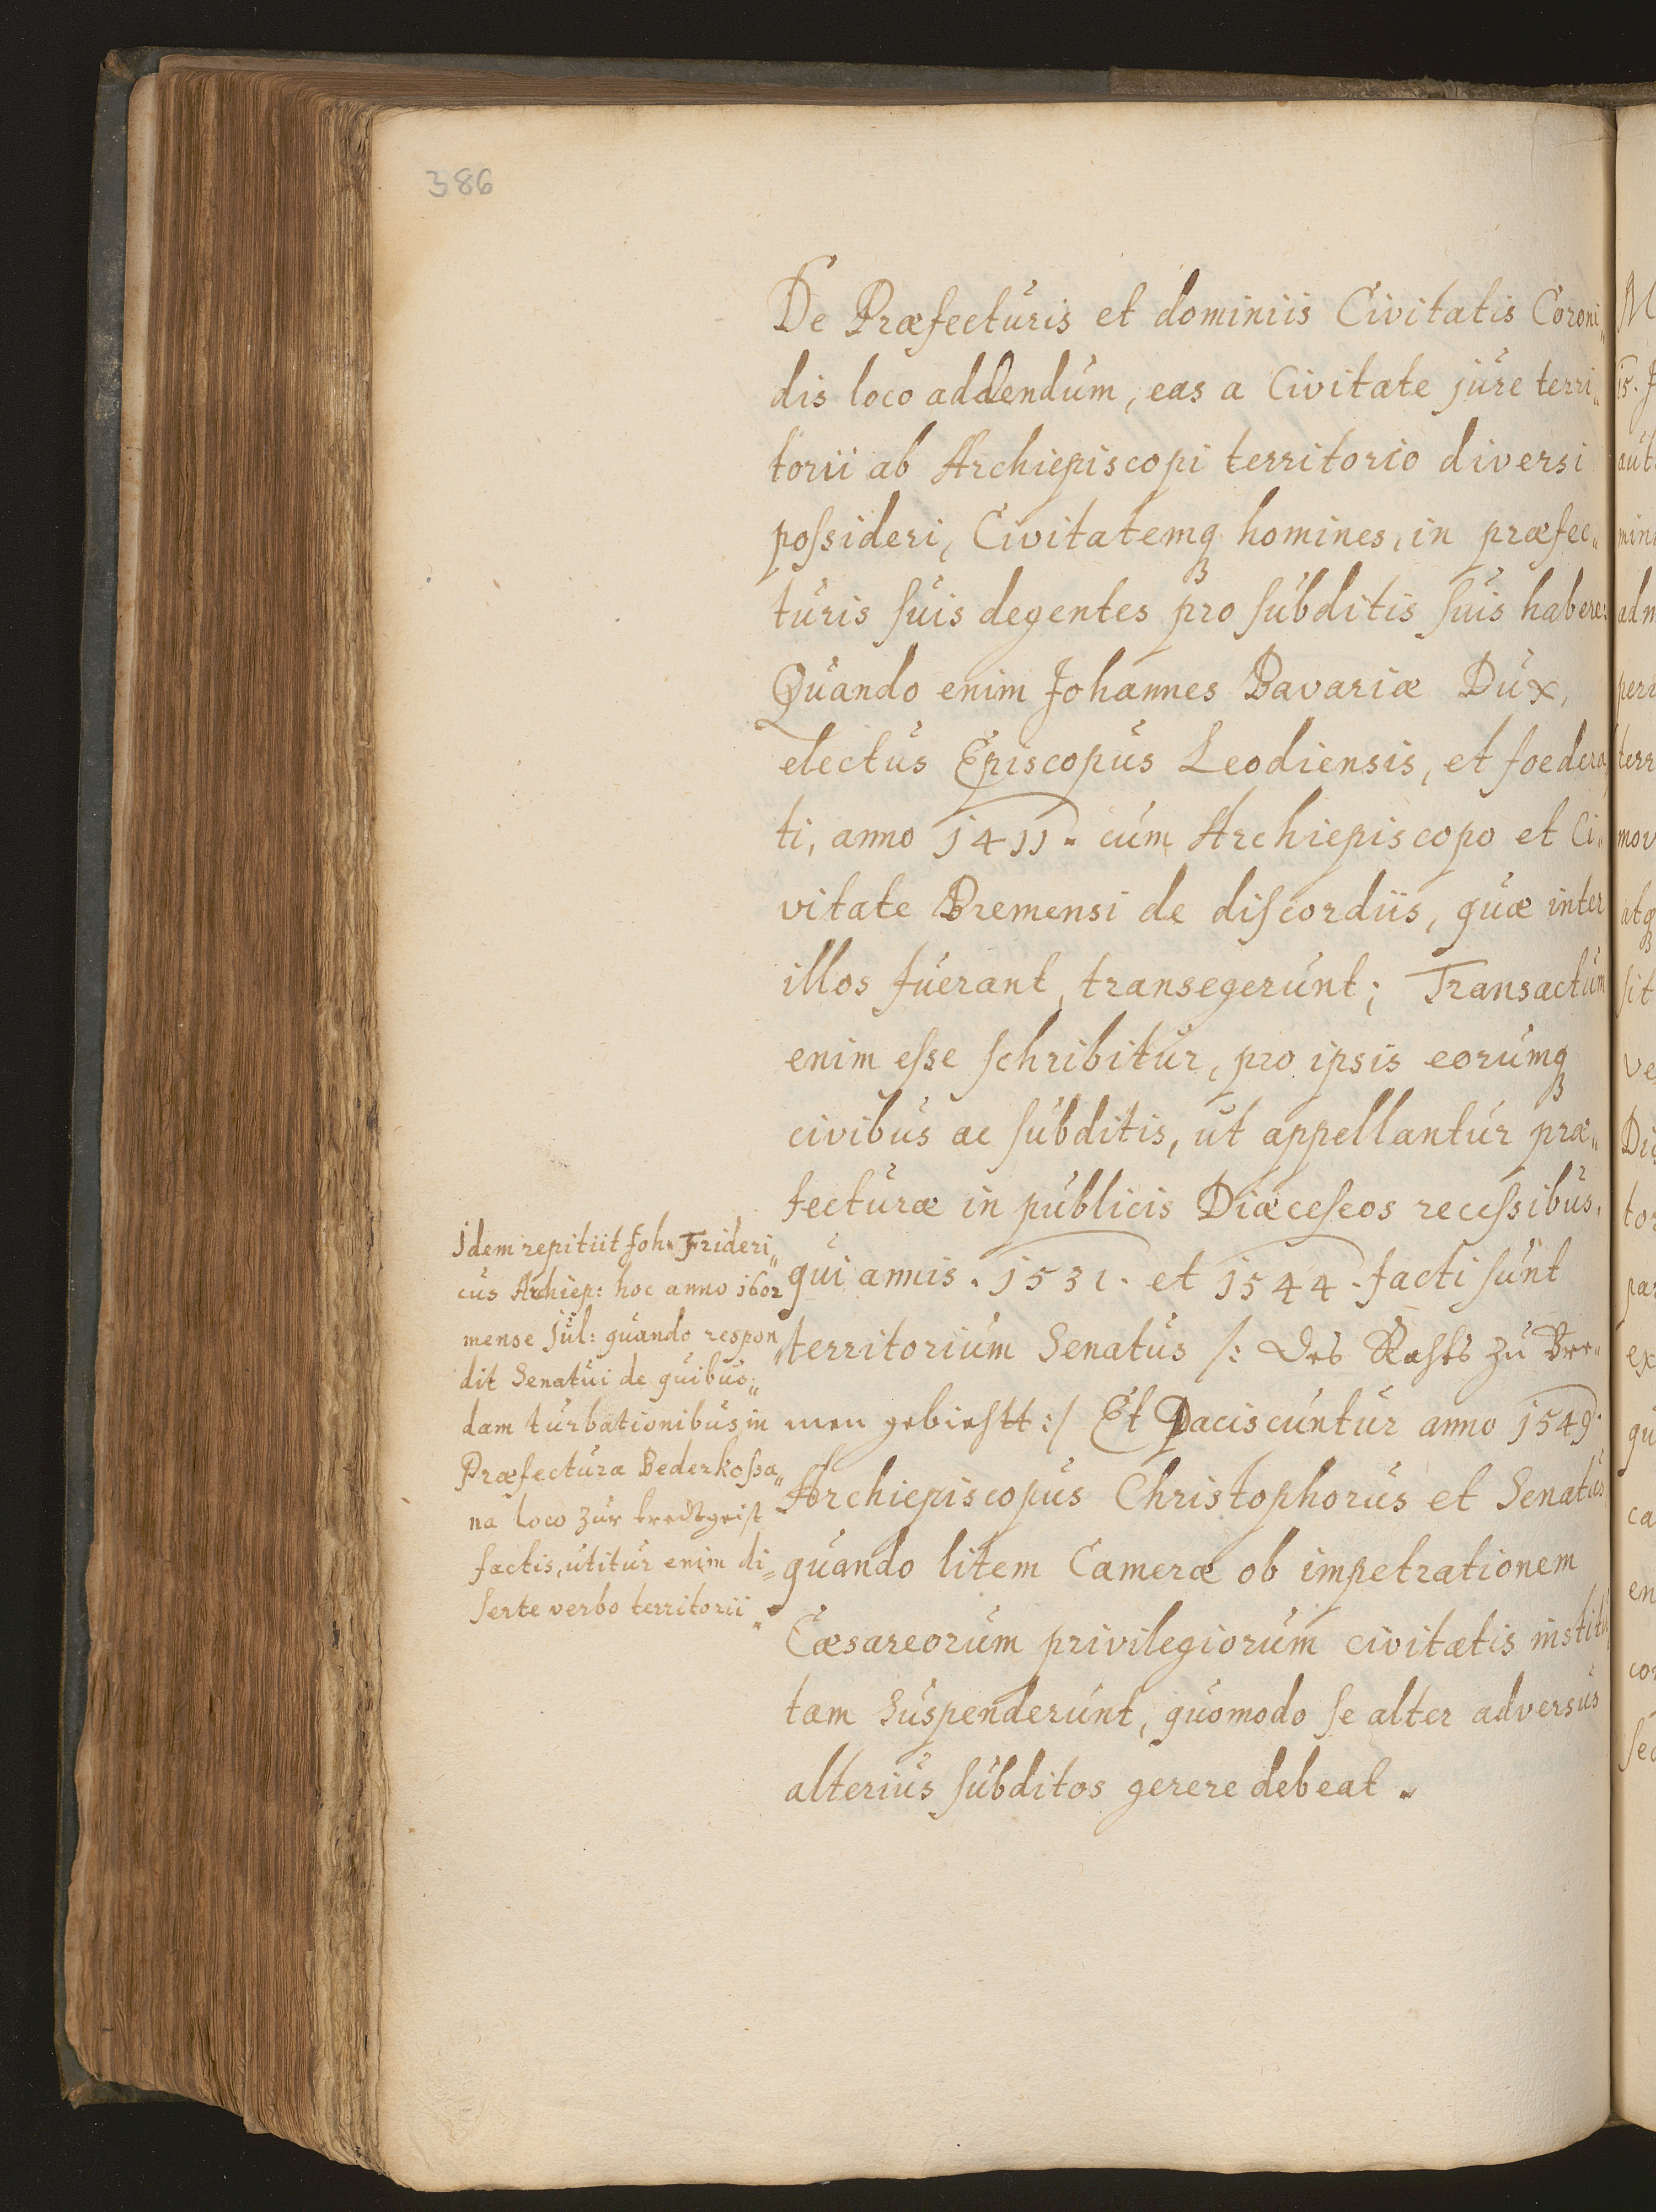 386
De Præfecturis et dominiis Civitatis Coroni„
dis loco addendum, eas a Civitate jure terri„
torii ab Archiepiscopi territorio diversi
poſsideri, Civitatemq₃ homines, in præfec„
turis ſuis degentes pro ſubditis ſuis habere:
Quando enim Johannes Bavariæ Dux,
electus Episcopus Leodiensis, et foedera
ti, anno 1411. cum Archiepiscopo et Ci„
vitate Bremensi de diſcordiis, quæ inter
illos fuerant, transegerunt; Transactum
enim eſse ſchribitur, pro ipsis eorumq₃
civibus ac ſubditis, ut appellantur præ„
fecturæ in publicis Diæceſeos receſsibus,
qui annis. 1531. et 1544. facti ſunt
territorium Senatus /: des Rahts zu Bre„
men gebiehtt :/ Et Paciscuntur anno 1549.
Archiepiscopus Christophorus et Senatus
quando litem Cameræ ob impetrationem
Cæsareorum privilegiorum civitatis institu
tam Suspenderunt, quomodo ſe alter adversus
alterius ſubditos gerere debeat.
Idem repitiit Joh. Frideri„
cus Archiep: hoc anno 1602
mense Jul: quando respon„
dit Senatui de quibus„
dam turbationibus in
Præfectura Bederkoſsa„
na loco zur
factis, utitur enim di„
ſerte verbo territorii.